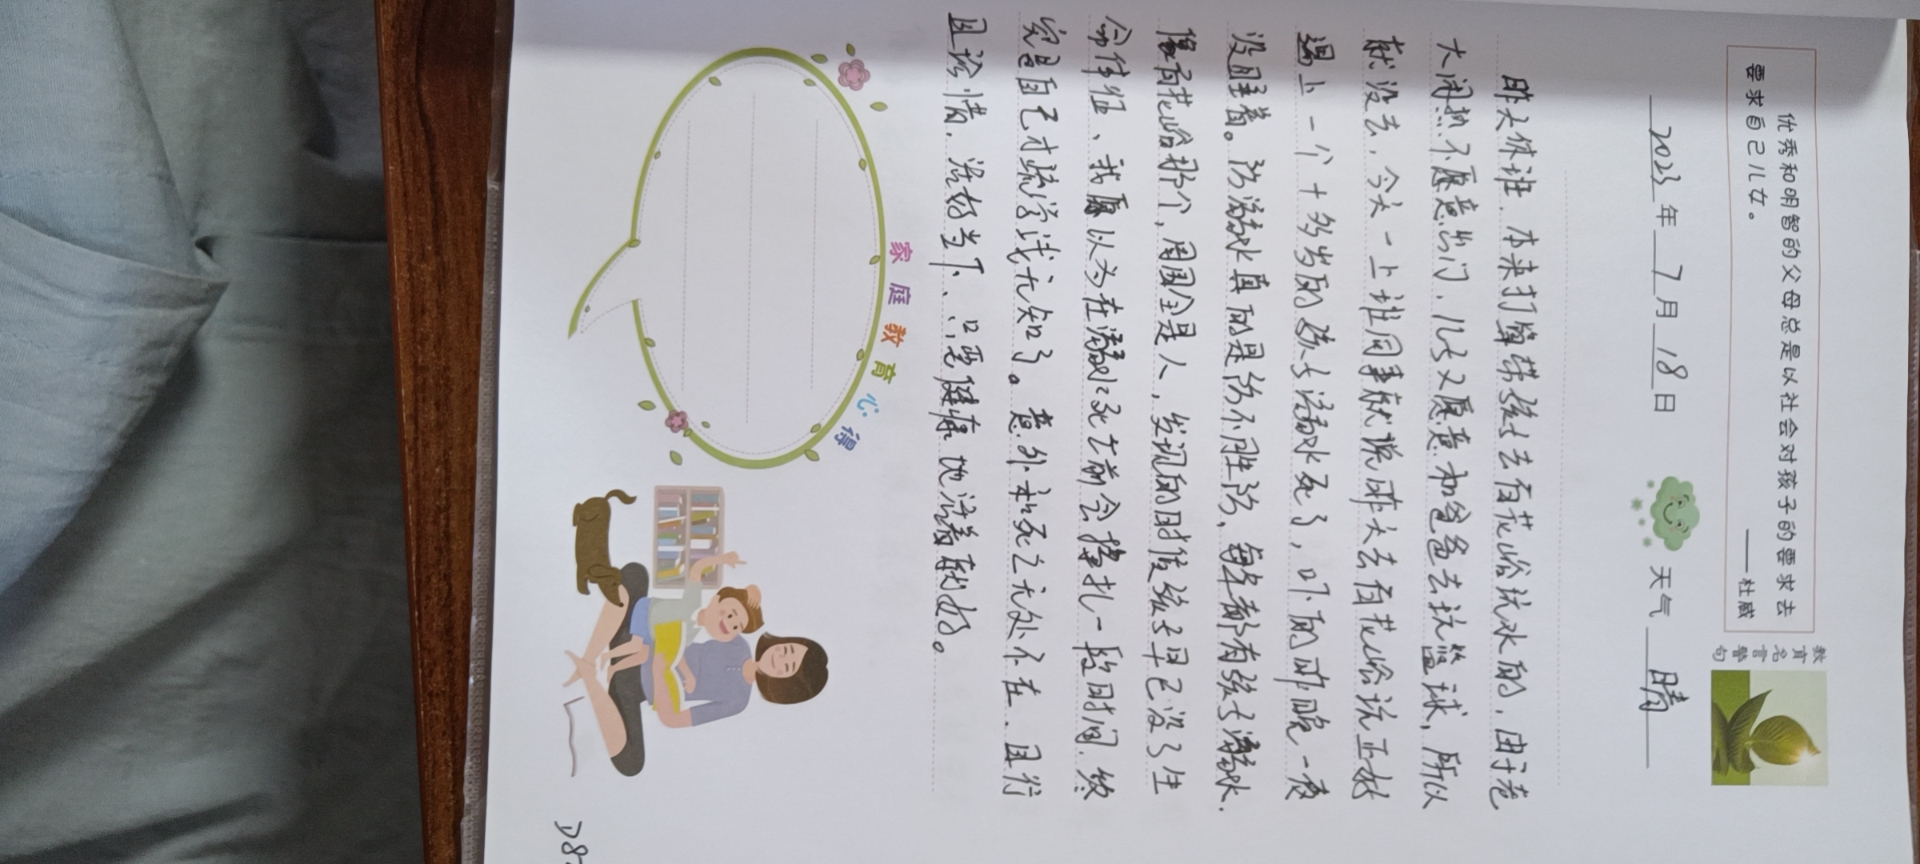 优秀和明智的父母总是以社会对孩子的要求去
要求自己儿女。
——杜威
教育名言警句
2023年7月18日 天气 晴
昨天休班，本来打算带孩子去百花峪玩水的，由于老
大闹热不愿意出门，儿子又愿意和爸爸去玩篮球，所以
就没去，今天一上班同事就说昨天去百花峪玩正好
遇上一个十多岁的孩子溺水死了，吓的昨晚一夜
没睡着。防溺水真的是防不胜防，每年都有孩子溺水，
像百花峪那个，周围全是人，发现的时候孩子早已没了生
命体征、我原以为在溺水死亡前会挣扎一段时间，终
究是自己才疏学浅无知了。意外和死亡无处不在，且行
且珍惜，活好当下、只要健康地活着就好。
家庭教育心得
D8